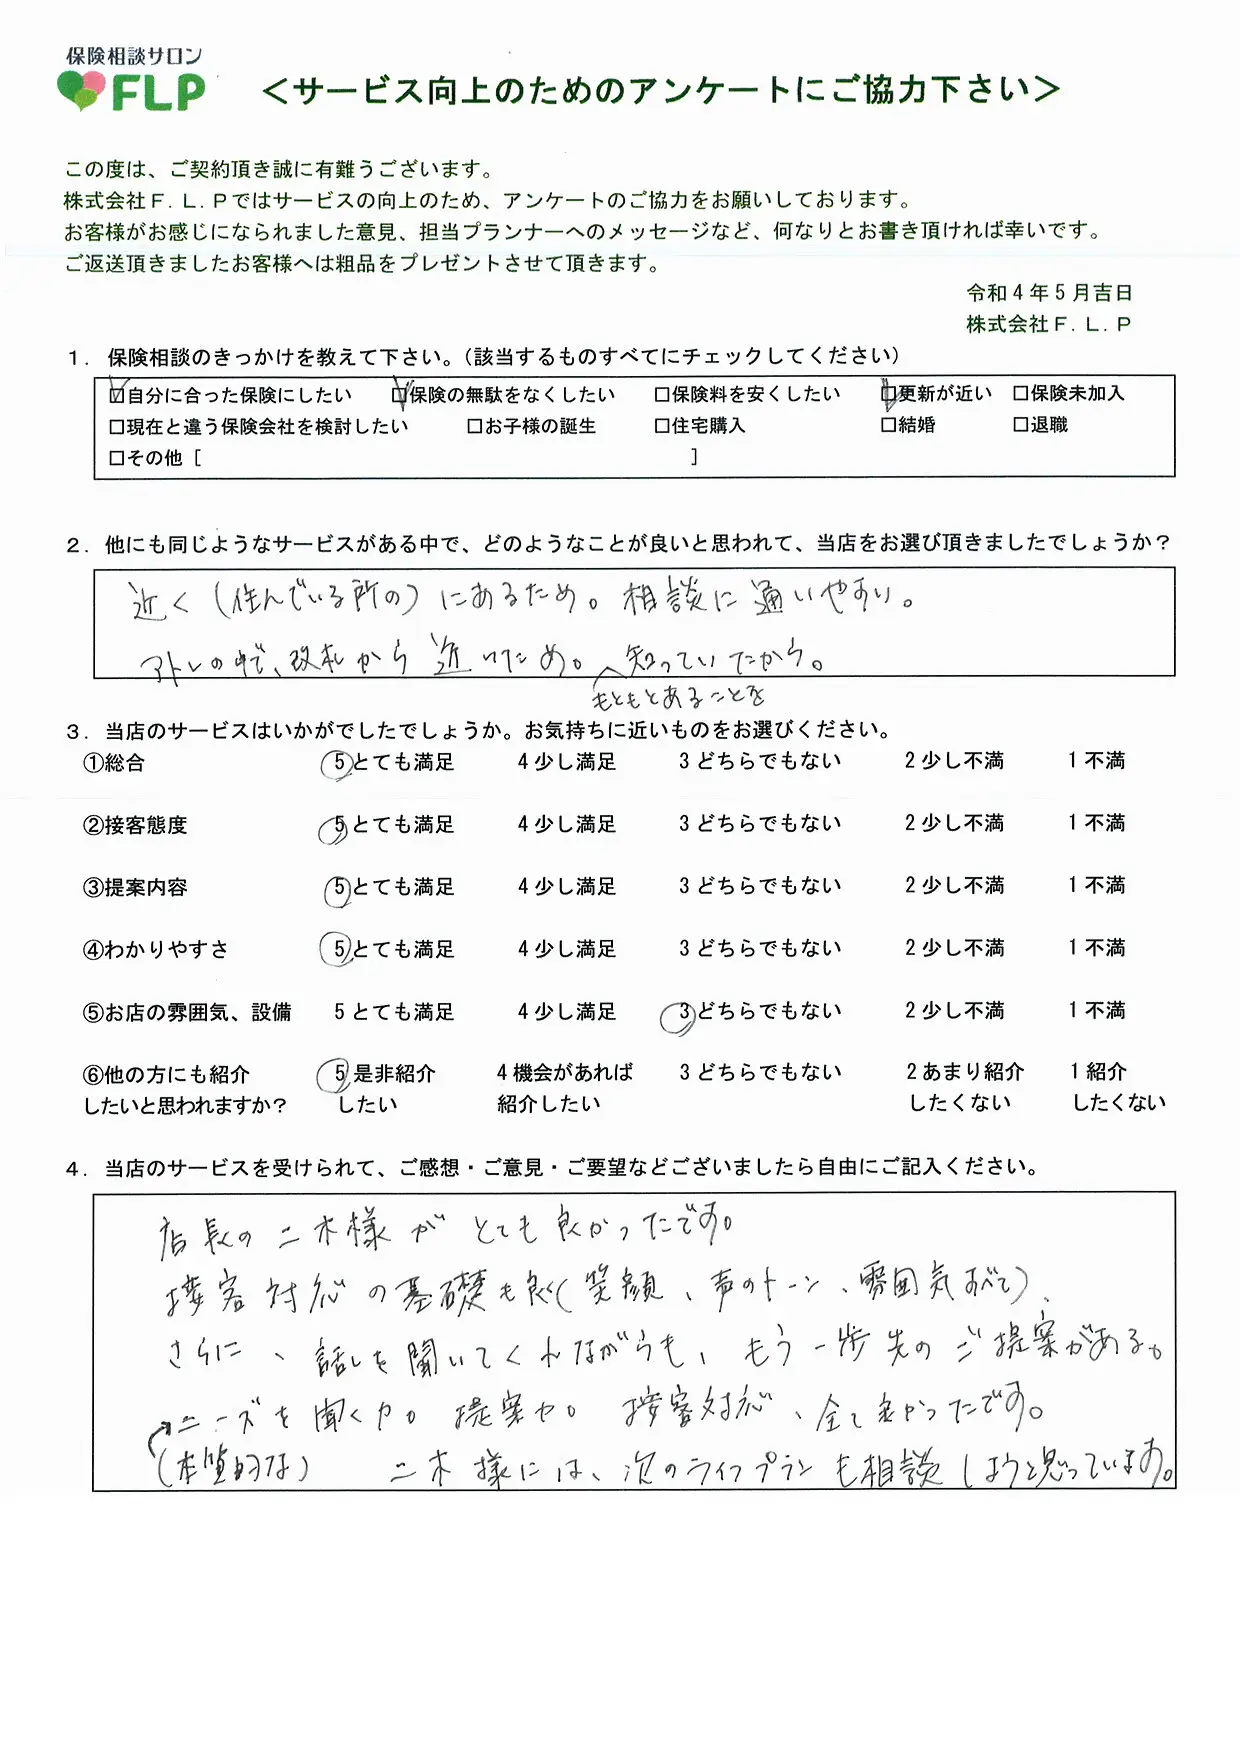 保険相談サロン
FLP
＜サービス向上のためのアンケートにご協力下さい＞
この度は、ご契約頂き誠に有難うございます。
株式会社Ｆ.Ｌ.Ｐではサービスの向上のため、アンケートのご協力をお願いしております。
お客様がお感じになられました意見、担当プランナーへのメッセージなど、何なりとお書き頂ければ幸いです。
ご返送頂きましたお客様へは粗品をプレゼントさせて頂きます。
令和４年５月吉日
株式会社Ｆ.Ｌ.Ｐ
１．保険相談のきっかけを教えて下さい。（該当するものすべてにチェックしてください）
☑自分に合った保険にしたい ☑保険の無駄をなくしたい □保険料を安くしたい ☑更新が近い □保険未加入
□現在と違う保険会社を検討したい □お子様の誕生 □住宅購入 □結婚 □退職
□その他［ ］
２．他にも同じようなサービスがある中で、どのようなことが良いと思われて、当店をお選び頂きましたでしょうか？
近く（住んでいる所の）にあるため。相談に通いやすい。
アトレの中で、改札から近いため。知っていたから。
もともとあることを
３．当店のサービスはいかがでしたでしょうか。お気持ちに近いものをお選びください。
①総合 5とても満足 4少し満足 3どちらでもない 2少し不満 1不満
②接客態度 5とても満足 4少し満足 3どちらでもない 2少し不満 1不満
③提案内容 5とても満足 4少し満足 3どちらでもない 2少し不満 1不満
④わかりやすさ 5とても満足 4少し満足 3どちらでもない 2少し不満 1不満
⑤お店の雰囲気、設備 5とても満足 4少し満足 3どちらでもない 2少し不満 1不満
⑥他の方にも紹介 5是非紹介 4機会があれば 3どちらでもない 2あまり紹介 1紹介
したいと思われますか？ したい 紹介したい したくない したくない
４．当店のサービスを受けられて、ご感想・ご意見・ご要望などございましたら自由にご記入ください。
店長の二木様がとても良かったです。
接客対応の基礎も良く（笑顔、声のトーン、雰囲気すべて）、
さらに、話しを聞いてくれながらも、もう一歩先のご提案がある。
ニーズを聞く力。提案力。接客対応、全て良かったです。
（本質的な） 二木様には、次のライフプランも相談しようと思っています。